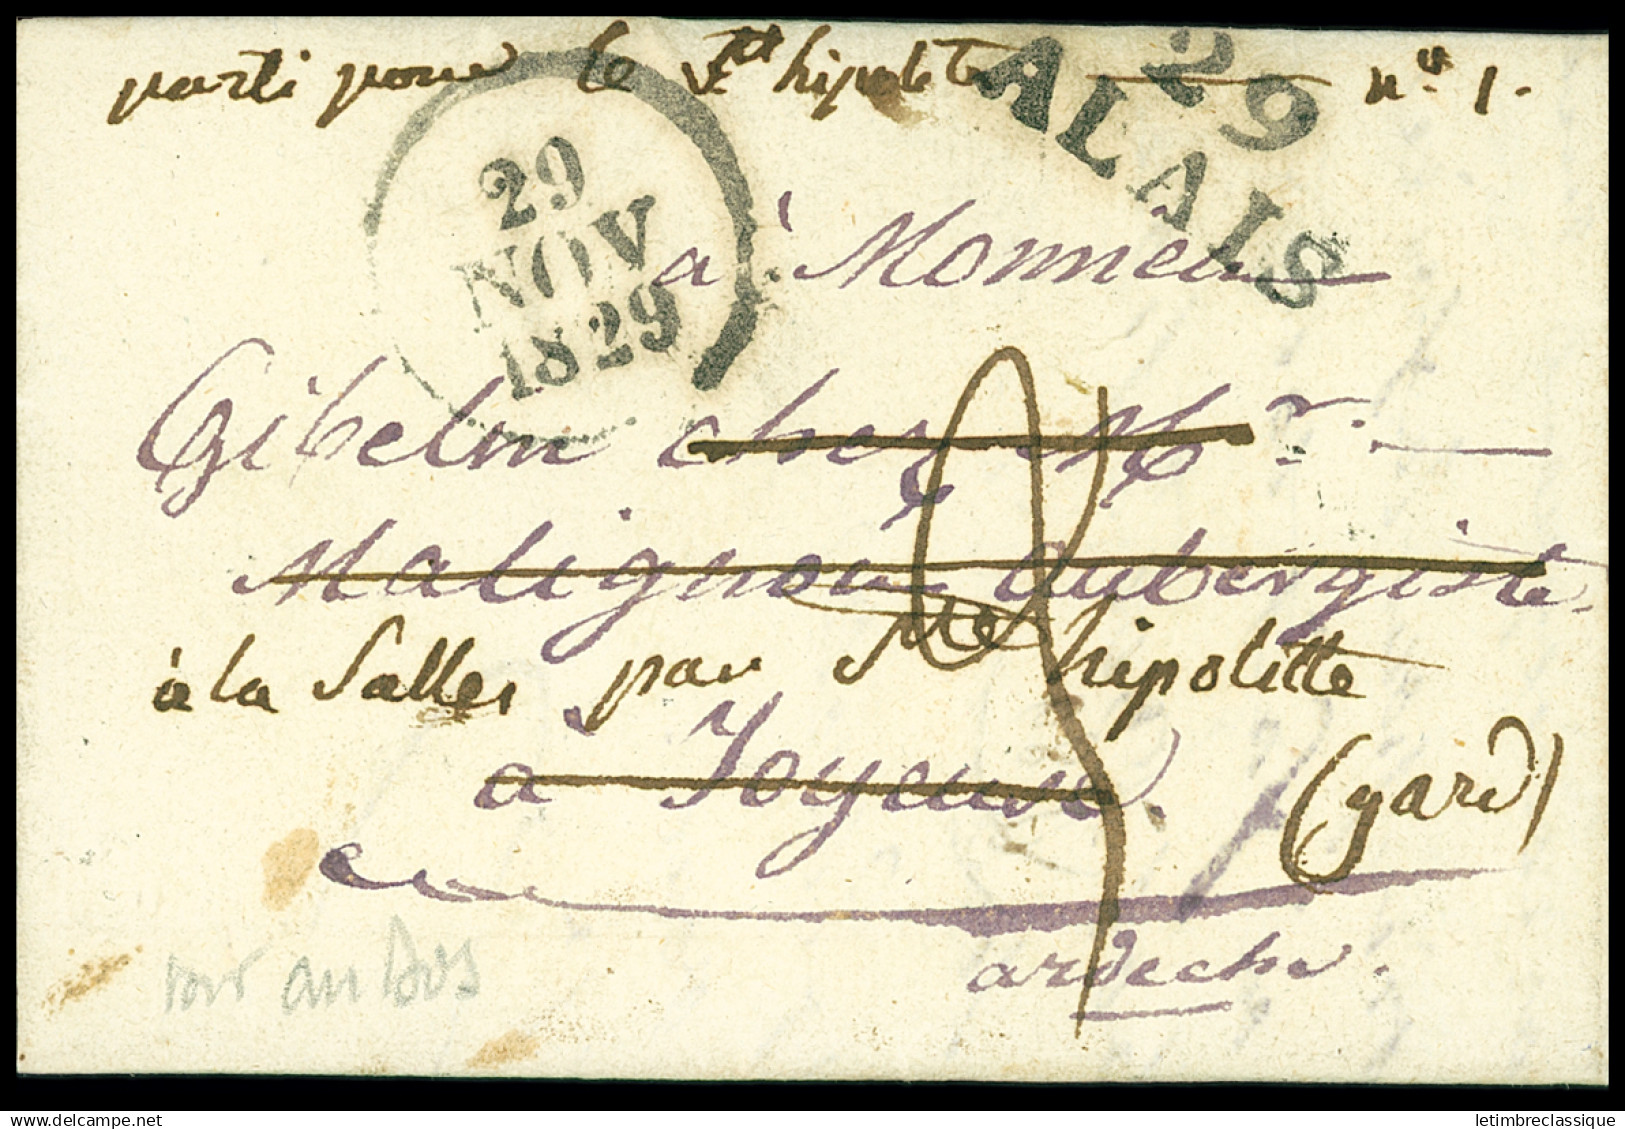 parti pour le Ste hipolite n° 1.
29
ALAIS
29
NOV
1829
à Monsieur
Gibelin chez Mr.
Malignon aubergiste
à la Salles par Ste hipolitte
à Joyeuse. (gard)
ardeche.
voir au dos
delcampe.net
letimbreclassique